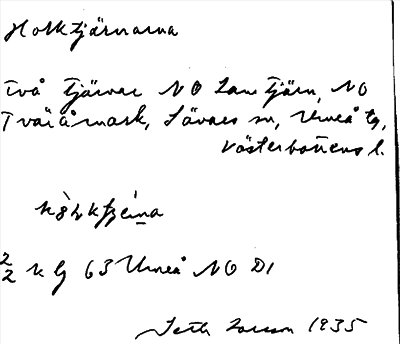 Holktjärnarna
två tjärnar NO Lamtjärn, NO
Tväråmark, Sävars sn, Umeå tg,
Västerbottens l.
2/2 kbl 63 Umeå NO D1
Seth Larsson 1935